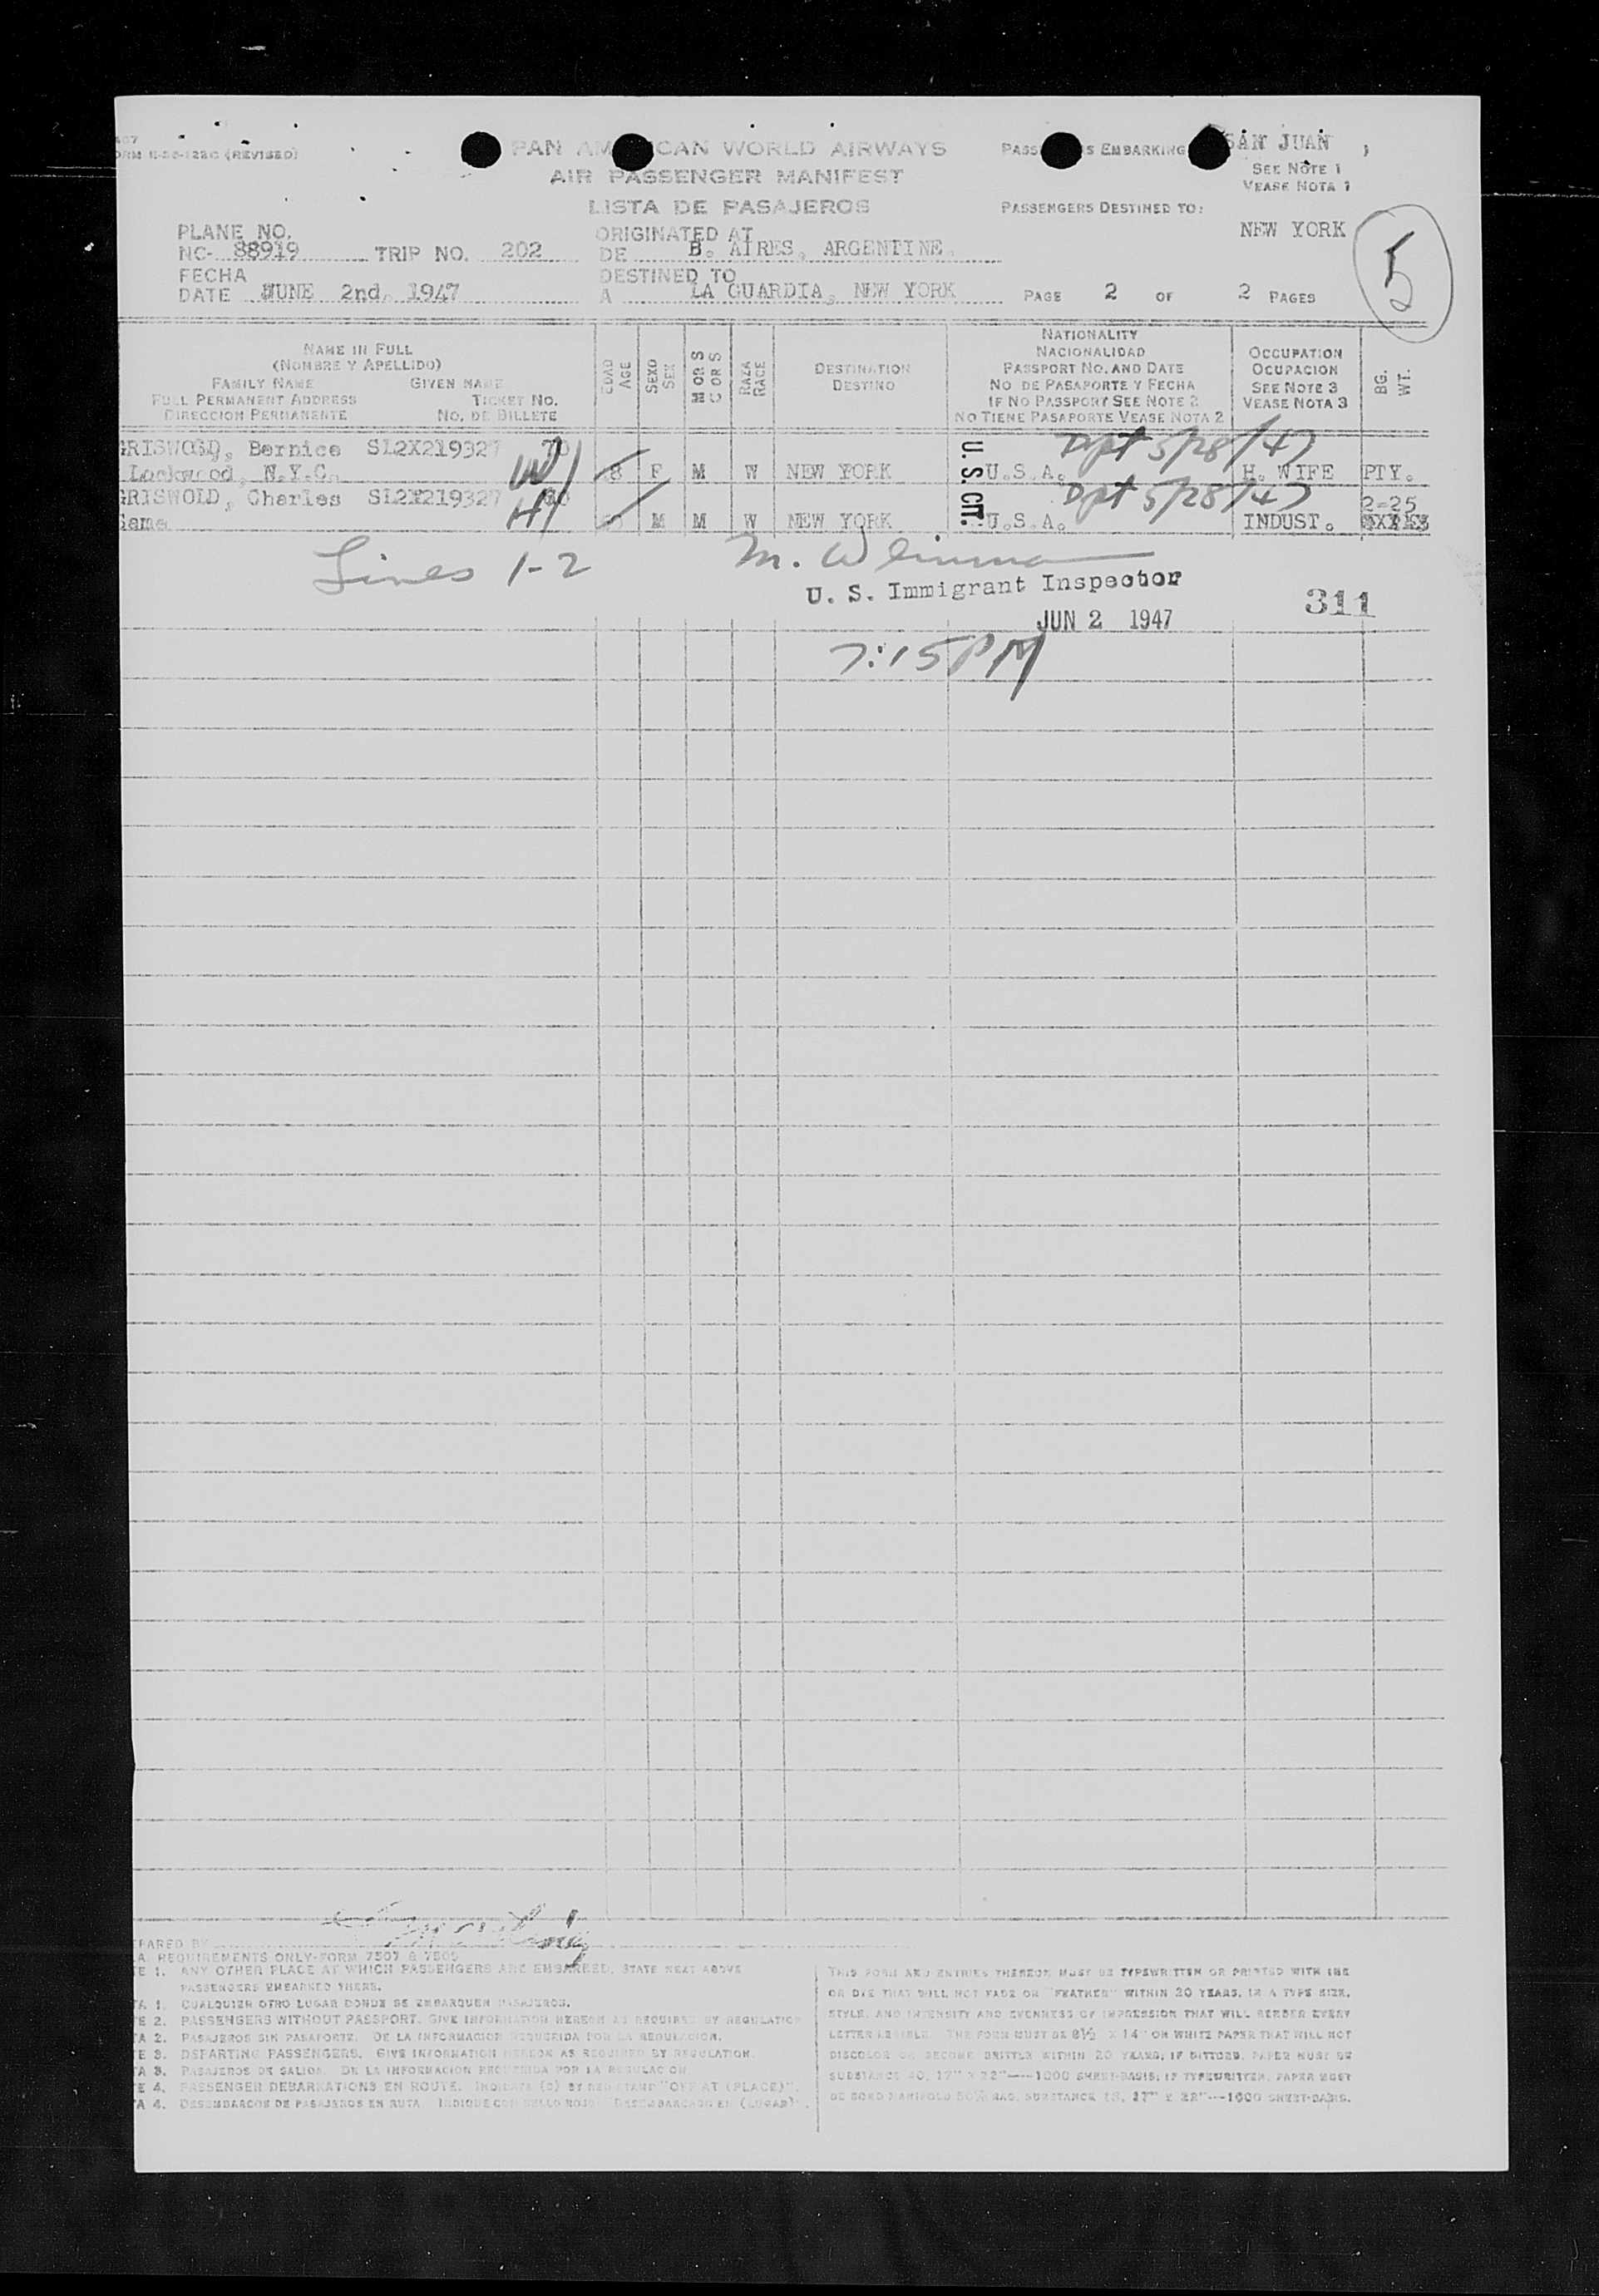 PAN AM CAN WORLD AIRWAYS
AIR PASSENGER MANIFEST
LISTA DE PASAJEROS
(REVISED)
PASS S EMBARKING SAN JUAN ,
SEE NOTE 1
VEASE NOTA 1
PASSENGERS DESTINED TO:
NEW YORK
5
PLANE NO.
NC- 88919 TRIP NO. 202
ORIGINATED AT
DE B. AIRES, ARGENTINE.
FECHA
DATE JUNE 2nd, 1947
DESTINED TO
A LA GUARDIA, NEW YORK
PAGE 2 OF 2 PAGES
NAME IN FULL
(NOMBRE Y APELLIDO)
FAMILY NAME GIVEN NAME
FULL PERMANENT ADDRESS TICKET NO.
DIRECCION PERMANENTE NO. DE BILLETE
EDAD
AGE
SEXO
SEX
M OR S
C OR S
RAZA
RACE
DESTINATION
DESTINO
NATIONALITY
NACIONALIDAD
PASSPORT NO. AND DATE
NO DE PASAPORTE Y FECHA
IF NO PASSPORT SEE NOTE 2
NO TIENE PASAPORTE VEASE NOTA 2
OCCUPATION
OCUPACION
SEE NOTE 3
VEASE NOTA 3
BG.
WT.
GRISWOLD, Bernice SL2X219327
Lockwood, N.Y.C. 8 F M W NEW YORK U.S.A. Dpt 5/28/47 H. WIFE PTY.
GRISWOLD, Charles SL2X219327
Same M M W NEW YORK U.S.A. Dpt 5/28/47 INDUST. 2-25
U.S. CIT.
Lines 1-2
U. S. Immigrant Inspector
JUN 2 1947
311
7:15 PM
PARED BY
A REQUIREMENTS ONLY-FORM 7507 & 7509
E 1. ANY OTHER PLACE AT WHICH PASSENGERS ARE EMBARKED, STATE NEXT ABOVE
PASSENGERS EMBARKED THERE.
TA 1. CUALQUIER OTRO LUGAR DONDE SE EMBARQUEN PASAJEROS.
E 2. PASSENGERS WITHOUT PASSPORT. GIVE INFORMATION HEREON AS REQUIRED BY REGULATION
TA 2. PASAJEROS SIN PASAPORTE. DE LA INFORMACION REQUERIDA POR LA REGULACION.
E 3. DEPARTING PASSENGERS. GIVE INFORMATION HEREON AS REQUIRED BY REGULATION.
TA 3. PASAJEROS DE SALIDA. DE LA INFORMACION REQUERIDA POR LA REGULACION
E 4. PASSENGER DEBARKATIONS EN ROUTE. INDICATE (D) BY RED STAMP "OFF AT (PLACE)".
TA 4. DESEMBARCOS DE PASAJEROS EN RUTA. INDIQUE CON SELLO ROJO "DESEMBARCADO EN (LUGAR)".
THIS FORM AND ENTRIES THEREON MUST BE TYPEWRITTEN OR PRINTED WITH INK
OR DYE THAT WILL NOT FADE OR "FEATHER" WITHIN 20 YEARS, IN A TYPE SIZE,
STYLE, AND INTENSITY AND EVENNESS OF IMPRESSION THAT WILL RENDER EVERY
LETTER LEGIBLE. THE FORM MUST BE 8½ X 14" ON WHITE PAPER THAT WILL NOT
DISCOLOR OR BECOME BRITTLE WITHIN 20 YEARS; IF DITTOED, PAPER MUST BE
SUBSTANCE 40, 17" X 22"—1000 SHEET-BASIS; IF TYPEWRITTEN, PAPER MUST
BE BOND MANIFOLD 50% RAG, SUBSTANCE 18, 17" X 22"—1000 SHEET-BASIS.